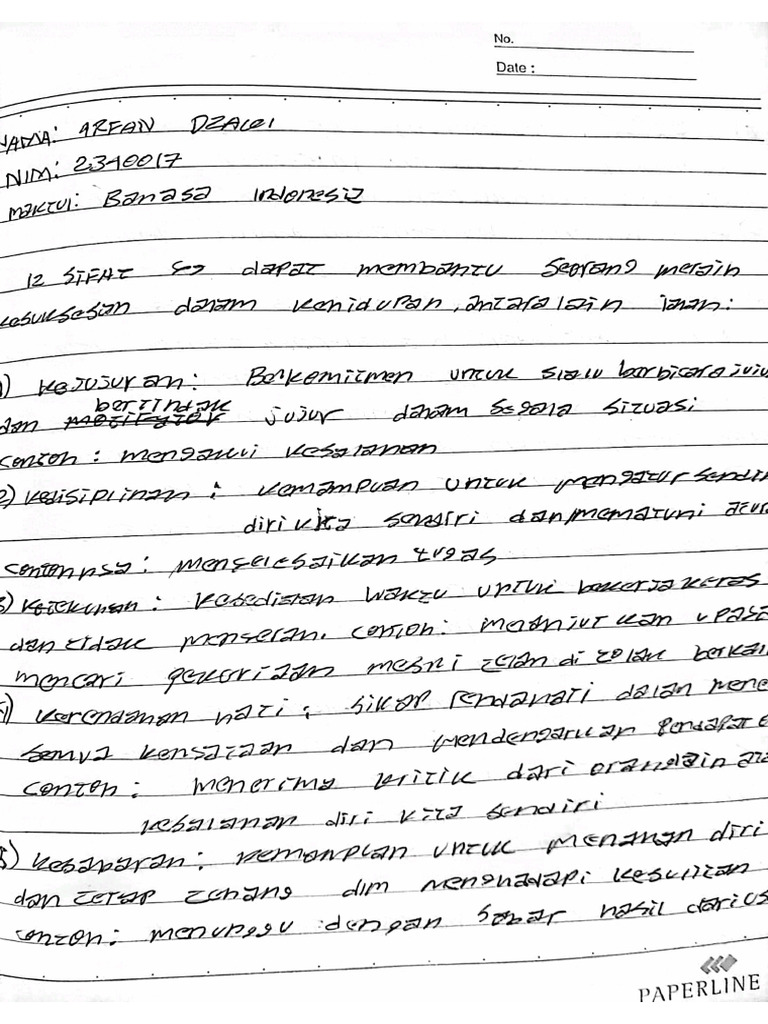 No.
Date :
NAMA: ARFAN DZAKI
NIM: 2340017
MAKTUI: Bahasa Indonesia
12 SIFAT yg dapat membantu Seorang meraih
kesuksesan dalam kehidupan, antara lain ialah:
1) Kejujuran: Berkemitmen untuk slalu berbicara juju
bertindak
dan jujur dalam segala situasi
contoh: mengakui kesalahan
2) Kedisiplinan: kemampuan untuk mengatur sendiri
diri kita sendiri dan mematuhi atura
contohnya: menyelesaikan tugas
3) Ketekunan: kesediaan waktu untuk bekerja keras
dan tidak menyerah. contoh: melanjutkan upaya
mencari pekerjaan meski telah di tolak berkali
4) Kerendahan hati: sikap rendah hati dalam mene
semua
dan mendengarkan pendapat
contoh: menerima kritik dari orang lain
kesalahan diri kita sendiri
5) Kesabaran: kemampuan untuk menahan diri
dan tetap tenang dlm menghadapi kesulitan
contoh: menunggu dengan sabar hasil dari
PAPERLINE